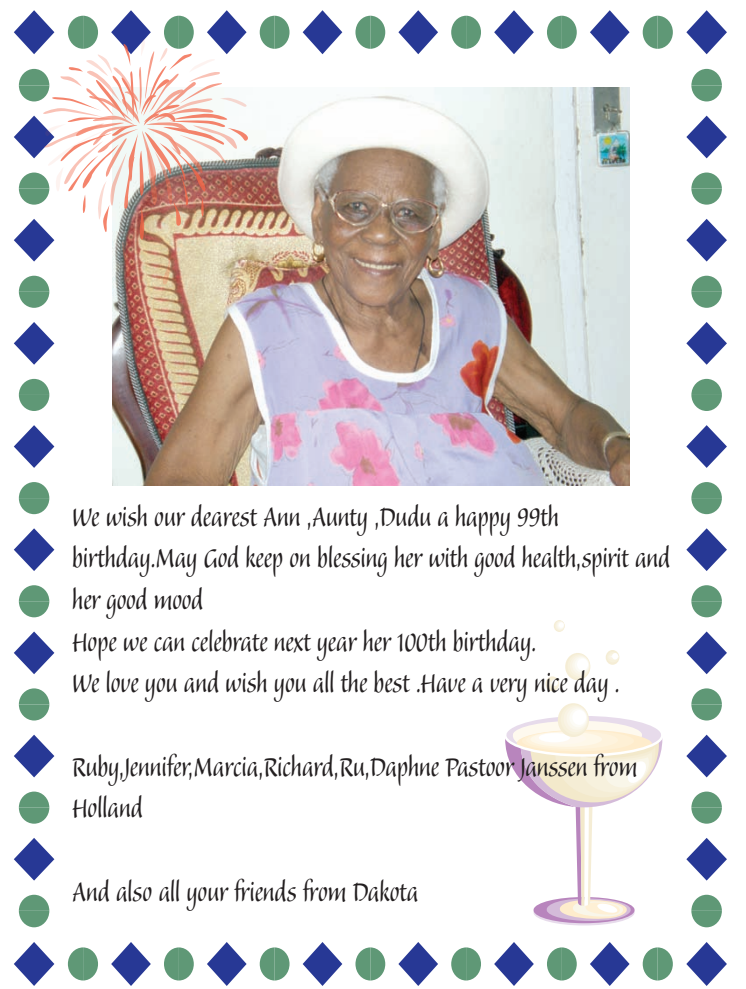 We wish our dearest Ann ,Aunty ,Dudu a happy 99th
birthday.May God keep on blessing her with good health,spirit and
her good mood
Hope we can celebrate next year her 100th birthday.
We love you and wish you all the best .Have a very nice day .
Ruby,Jennifer,Marcia,Richard,Ru,Daphne Pastoor Janssen from
Holland
And also all your friends from Dakota